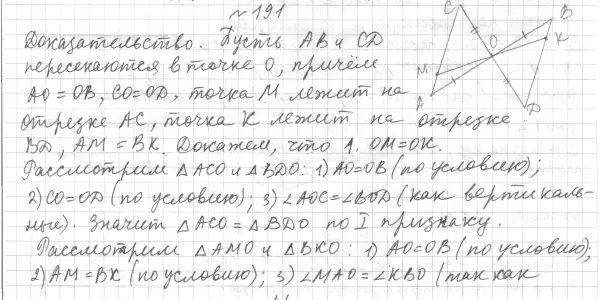 № 191
Доказательство. Пусть AB и CD
пересекаются в точке O, причём
AO = OB, CO = OD, точка M лежит на
отрезке AC, точка K лежит на отрезке
BD, AM = BK. Докажем, что 1. OM = OK.
Рассмотрим △ACO и △BDO: 1) AO = OB (по условию);
2) CO = OD (по условию); 3) ∠AOC = ∠BOD (как вертикаль-
ные). Значит △ACO = △BDO по I признаку.
Рассмотрим △AMO и △BKO: 1) AO = OB (по условию);
2) AM = BK (по условию); 3) ∠MAO = ∠KBO (так как
C
B
O
K
M
A
D